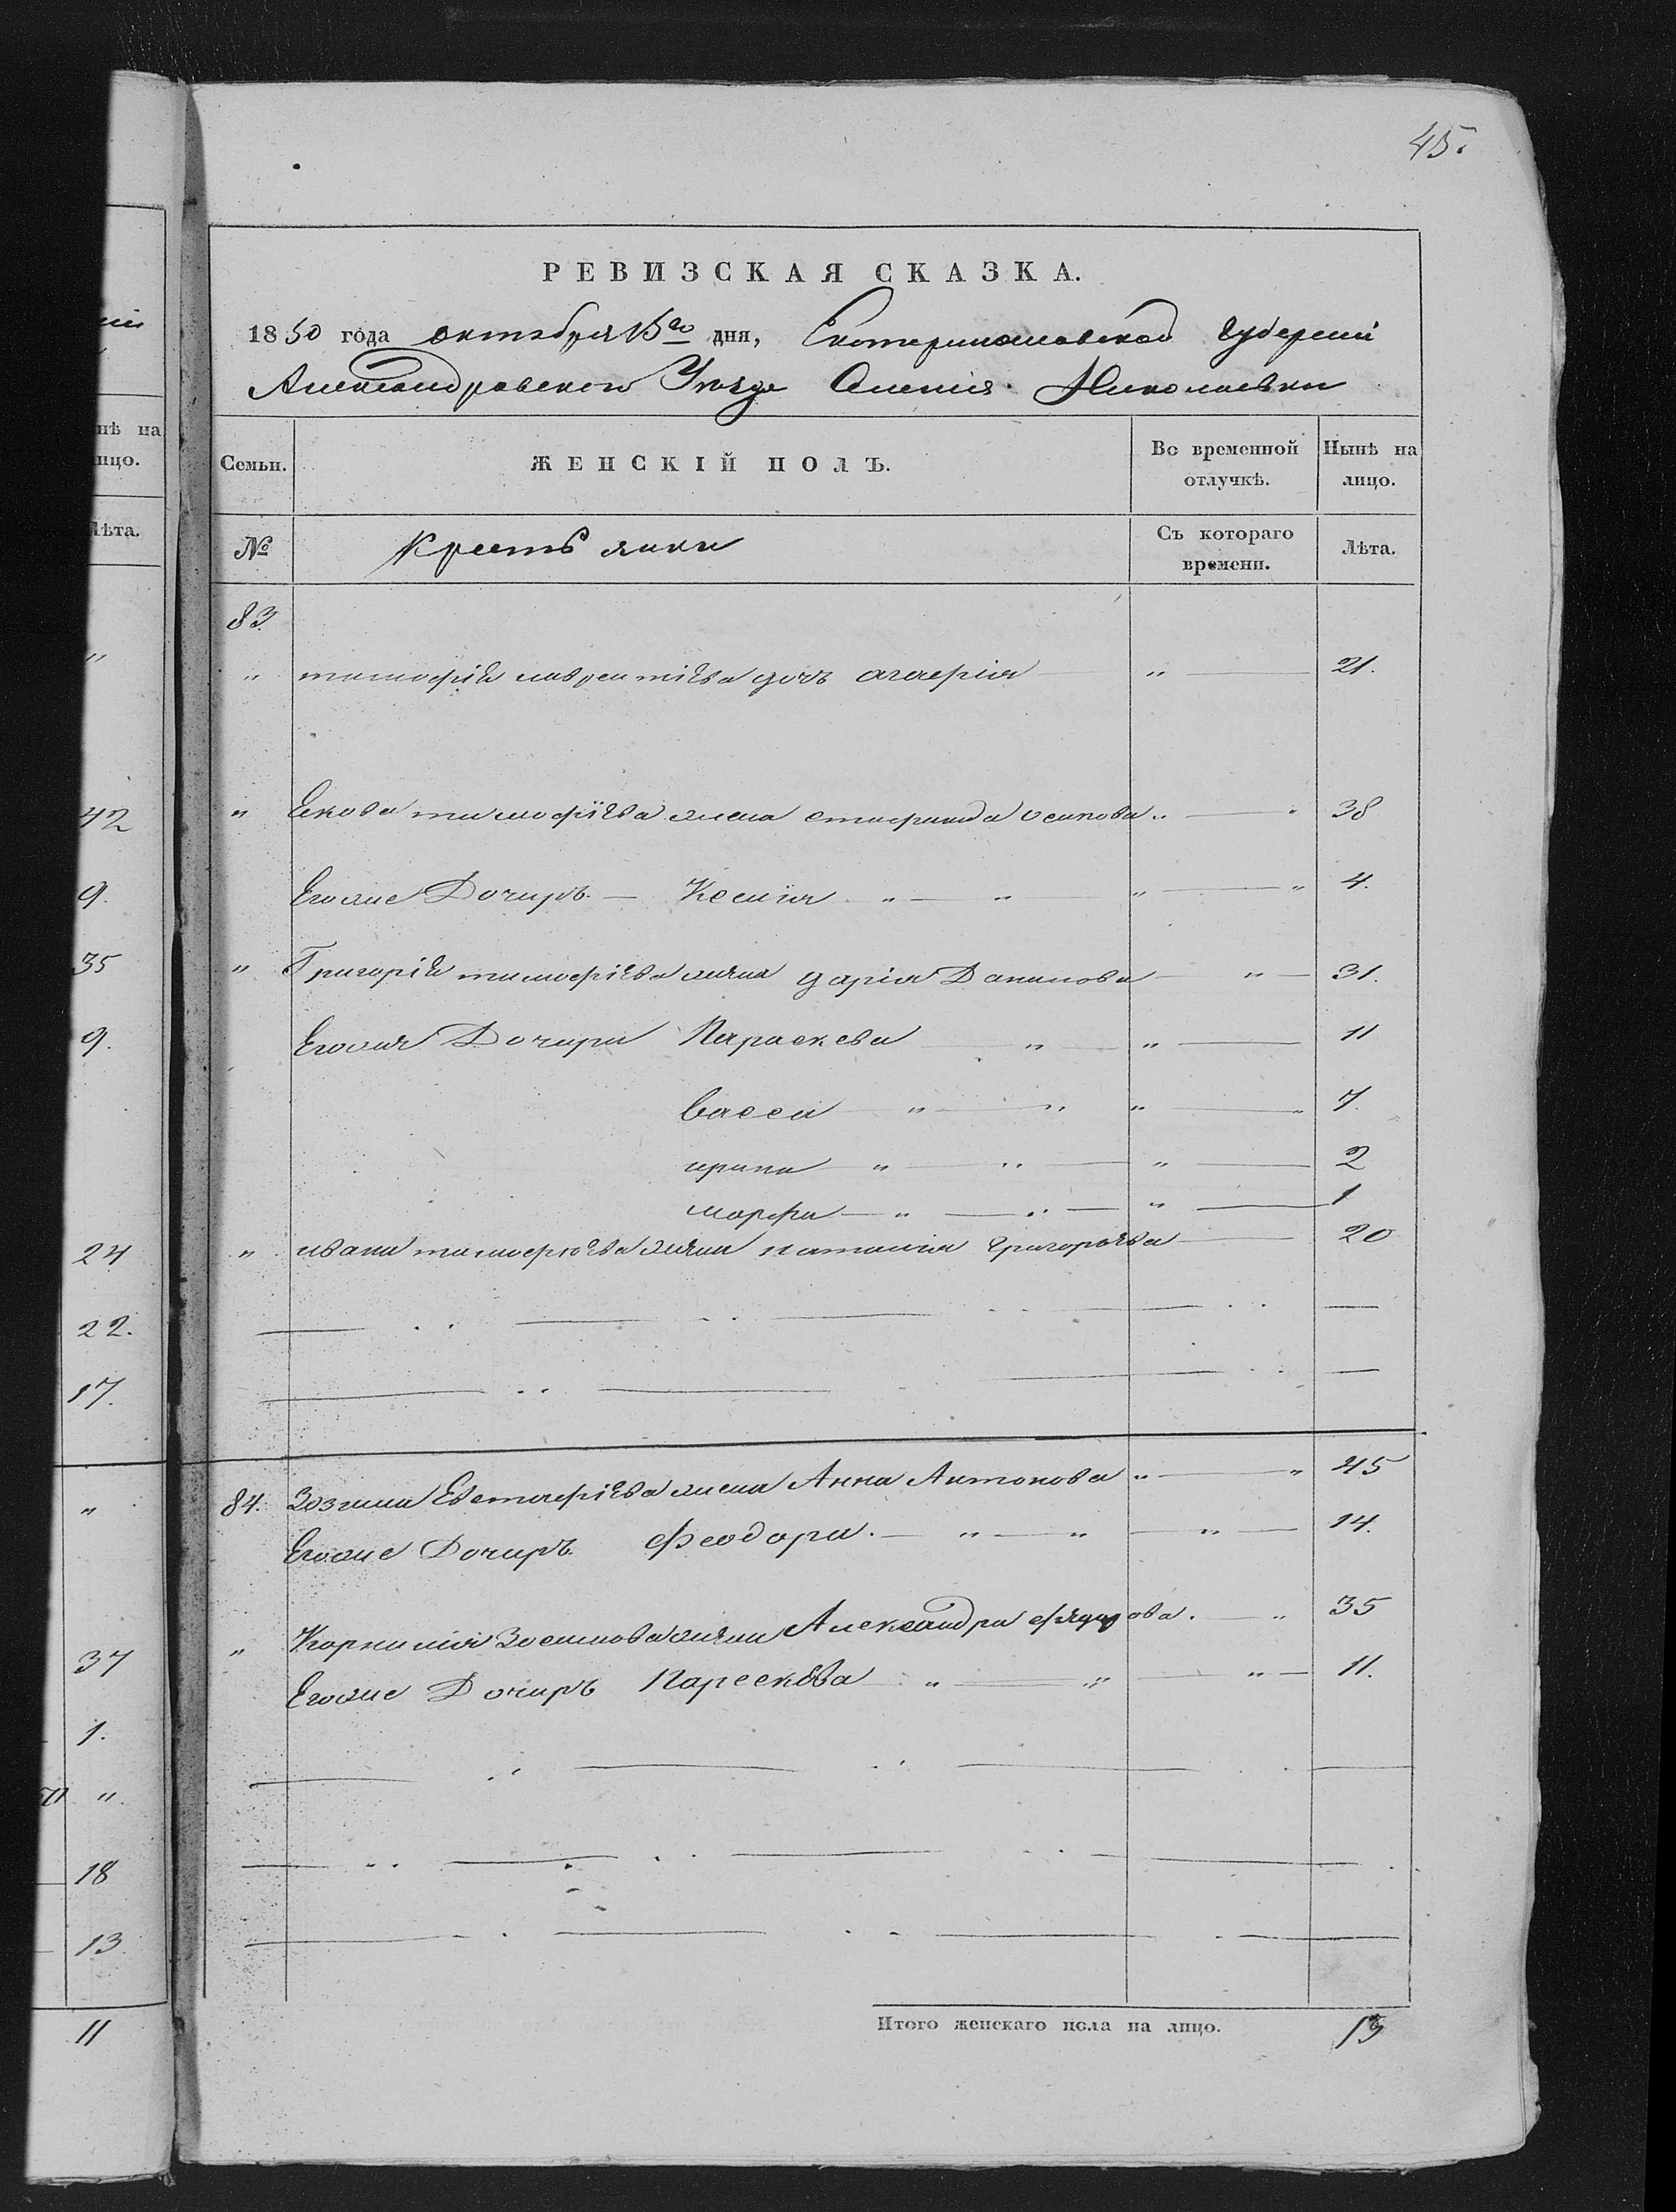 45.
РЕВИЗСКАЯ СКАЗКА.
1850 года октября 15го дня, Екатеринославской Губернии
Александровского Уезда Николаевки
Семьи. ЖЕНСКІЙ ПОЛЪ. Во временной отлучкѣ. Нынѣ на лицо.
№ Крестьянки Съ котораго времени. Лѣта.
83.
" тимофѣя лаврентіева дочь агафія " — 21.
" Екова тимофіева жена Осипова " — " 38
Егоже Дочиръ — Ксенія " — " " — " 4.
" Григорія тимофіева жена дарія Данилова — " — 31.
Егоже Дочири Параскева — " — " — 11
васса — " — " " — " 7.
ирина — " — " — " — 2
марфа — " — " — " — 1
" ивана тимофіева жена наталия григорьева — 20
84. Зозима Евстафіева жена Анна Антонова " — " 45
Егоже Дочиръ Феодора. — " — " — " — 14.
" Корнилія Зосимова жена Александра ова. — " 35
Егоже Дочиръ Параскева " — " — " — 11.
Итого женскаго пола на лицо. 13
нѣ на
ицо.
Лѣта.
"
42
9.
35
9.
24
22.
17.
"
37
1.
"
18
13
11